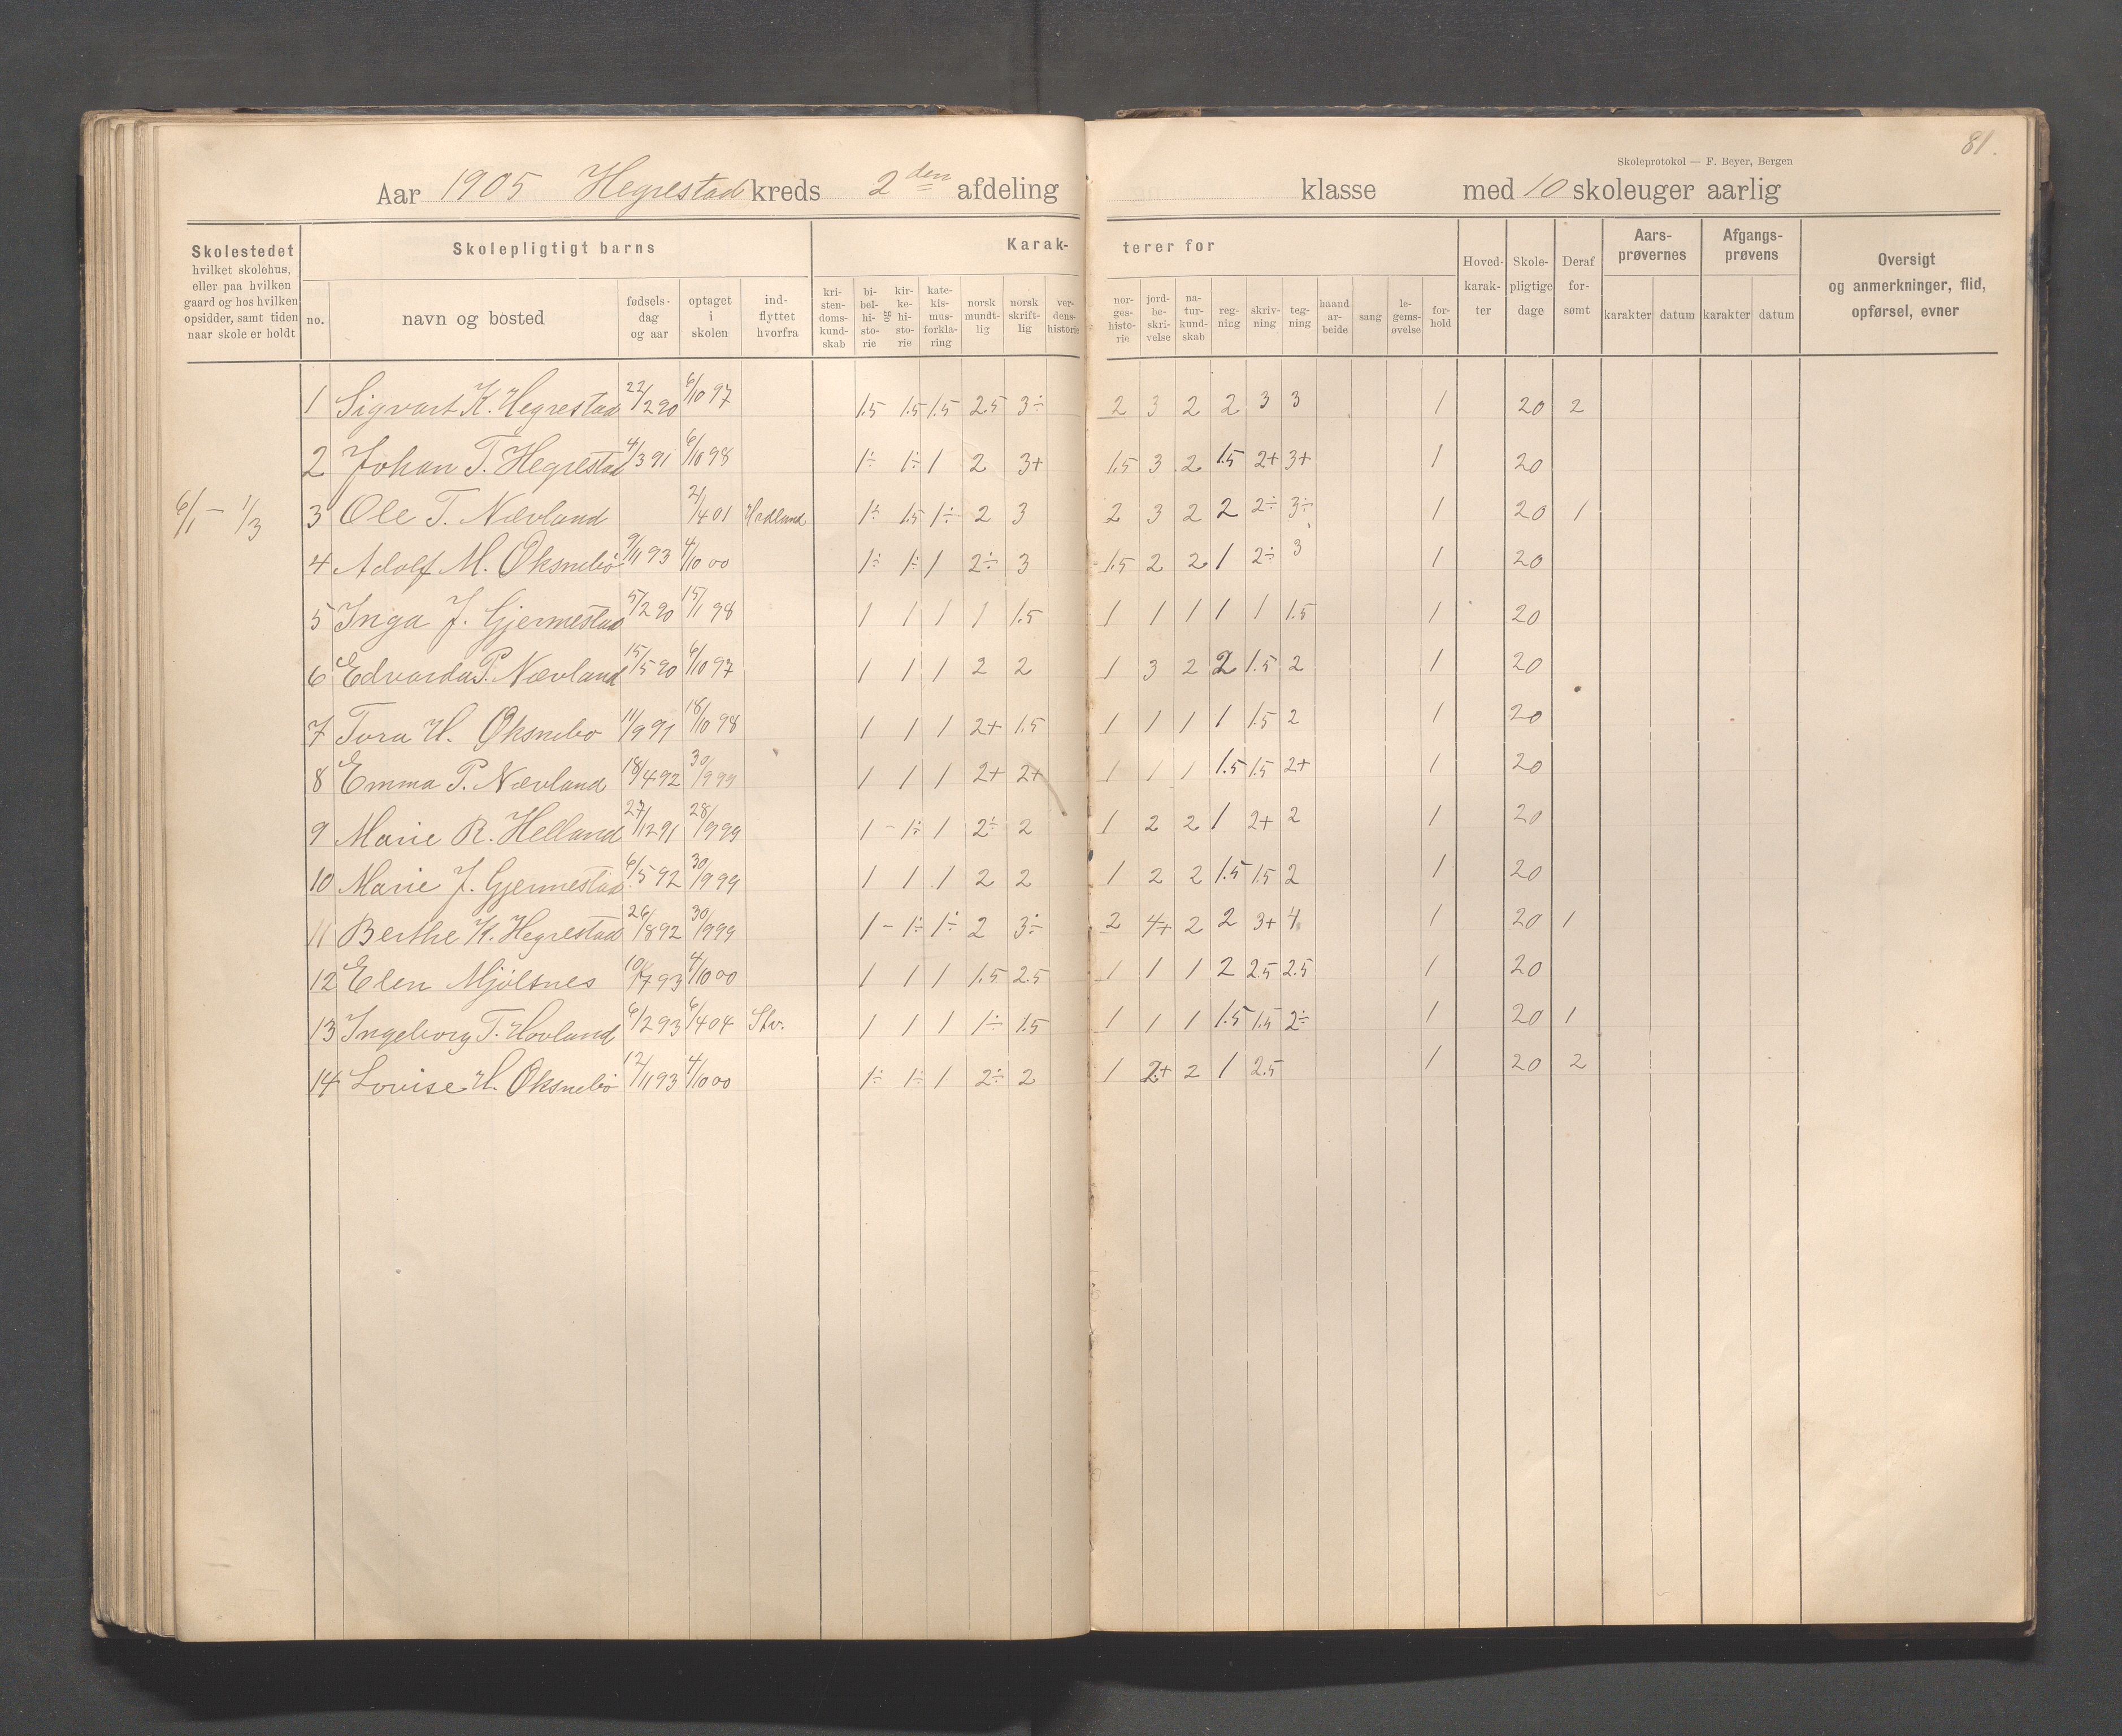 81.
Skoleprotokol — F. Beyer, Bergen
Aar 1905 Hegrestad kreds 2den afdeling klasse med 10 skoleuger aarlig
Skolestedet hvilket skolehus, eller paa hvilken gaard og hos hvilken opsidder, samt tiden naar skole er holdt
Skolepligtigt barns
no.
navn og bosted
fødsels-dag og aar
optaget i skolen
ind-flyttet hvorfra
Karak-terer for
kri-sten-doms-kund-skab
bi-bel-hi-sto-rie
og
kir-ke-hi-sto-rie
kate-kis-mus-forkla-ring
norsk mundt-lig
norsk skrift-lig
ver-dens-historie
nor-ges-histo-rie
jord-be-skri-velse
na-tur-kund-skab
reg-ning
skriv-ning
teg-ning
haand ar-beide
sang
le-gems-øvelse
for-hold
Hoved-karak-ter
Skole-pligtige dage
Deraf for-sømt
Aars-prøvernes
karakter datum
Afgangs-prøvens
karakter datum
Oversigt og anmerkninger, flid, opførsel, evner
1 Sigvart K. Hegrestad 22/2 90 6/10 97 1.5 1.5 1.5 2.5 3÷ 2 3 2 2 3 3 1 20 2
2 Johan T. Hegrestad 4/3 91 6/10 98 1÷ 1÷ 1 2 3+ 1.5 3 2 1.5 2+ 3+ 1 20
6/1 – 1/3 3 Ole T. Nævland 2/4 01 1÷ 1.5 1÷ 2 3 2 3 2 2 2÷ 3÷ 1 20 1
4 Adolf M. Øksnebø 9/11 93 4/10 00 1÷ 1÷ 1 2÷ 3 1.5 2 2 1 2÷ 3 1 20
5 Inga J. Gjermestad 5/2 90 15/1 98 1 1 1 1 1.5 1 1 1 1 1 1.5 1 20
6 Edvarda P. Nævland 15/5 90 6/10 97 1 1 1 2 2 1 3 2 2 1.5 2 1 20
7 Tora H. Øksnebø 11/9 91 18/10 98 1 1 1 2+ 1.5 1 1 1 1 1.5 2 1 20
8 Emma P. Nævland 18/4 92 30/9 99 1 1 1 2+ 2+ 1 1 1 1.5 1.5 2+ 1 20
9 Marie R. Helland 27/12 91 28/9 99 1 – 1÷ 1 2÷ 2 1 2 2 1 2+ 2 1 20
10 Marie J. Gjermestad 6/5 92 30/9 99 1 1 1 2 2 1 2 2 1.5 1.5 2 1 20
11 Berthe K. Hegrestad 26/8 92 30/9 99 1 – 1÷ 1÷ 2 3÷ 2 4+ 2 2 3+ 4 1 20 1
12 Elen Mjölsnes 10/7 93 4/10 00 1 1 1 1.5 2.5 1 1 1 2 2.5 2.5 1 20
13 Ingeborg T. Hovland 6/2 93 6/4 04 Stv. 1 1 1 1÷ 1.5 1 1 1 1.5 1.5 2÷ 1 20 1
14 Lovise H. Øksnebø 12/11 93 4/10 00 1÷ 1÷ 1 2÷ 2 1 2+ 2 1 2.5 1 20 2